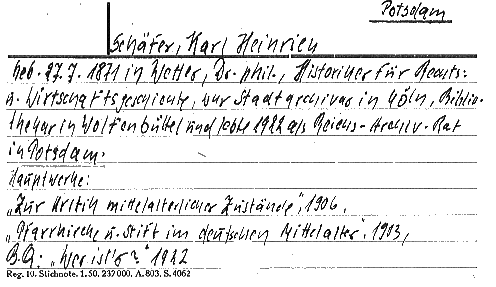 Potsdam
Schäfer, Karl Heinrich
Geb. 27.7.1871 in Wetter, Dr. phil., Historiker für Rechts-
u. Wirtschaftsgeschichte, war Stadtarchivar in Cöln, Biblio-
thekar in Wolfenbüttel und lebte 1922 als Reichs-Archiv-Rat
in Potsdam.
Hauptwerke:
„Zur Kritik mittelalterlicher Zustände", 1906,
„Pfarrkirche u. Stift im deutschen Mittelalter" 1903,
B.Q.: „Wer ist's?" 1922
Reg. 10. Stichnote. 1. 50. 237 000. A. 803. S. 4062